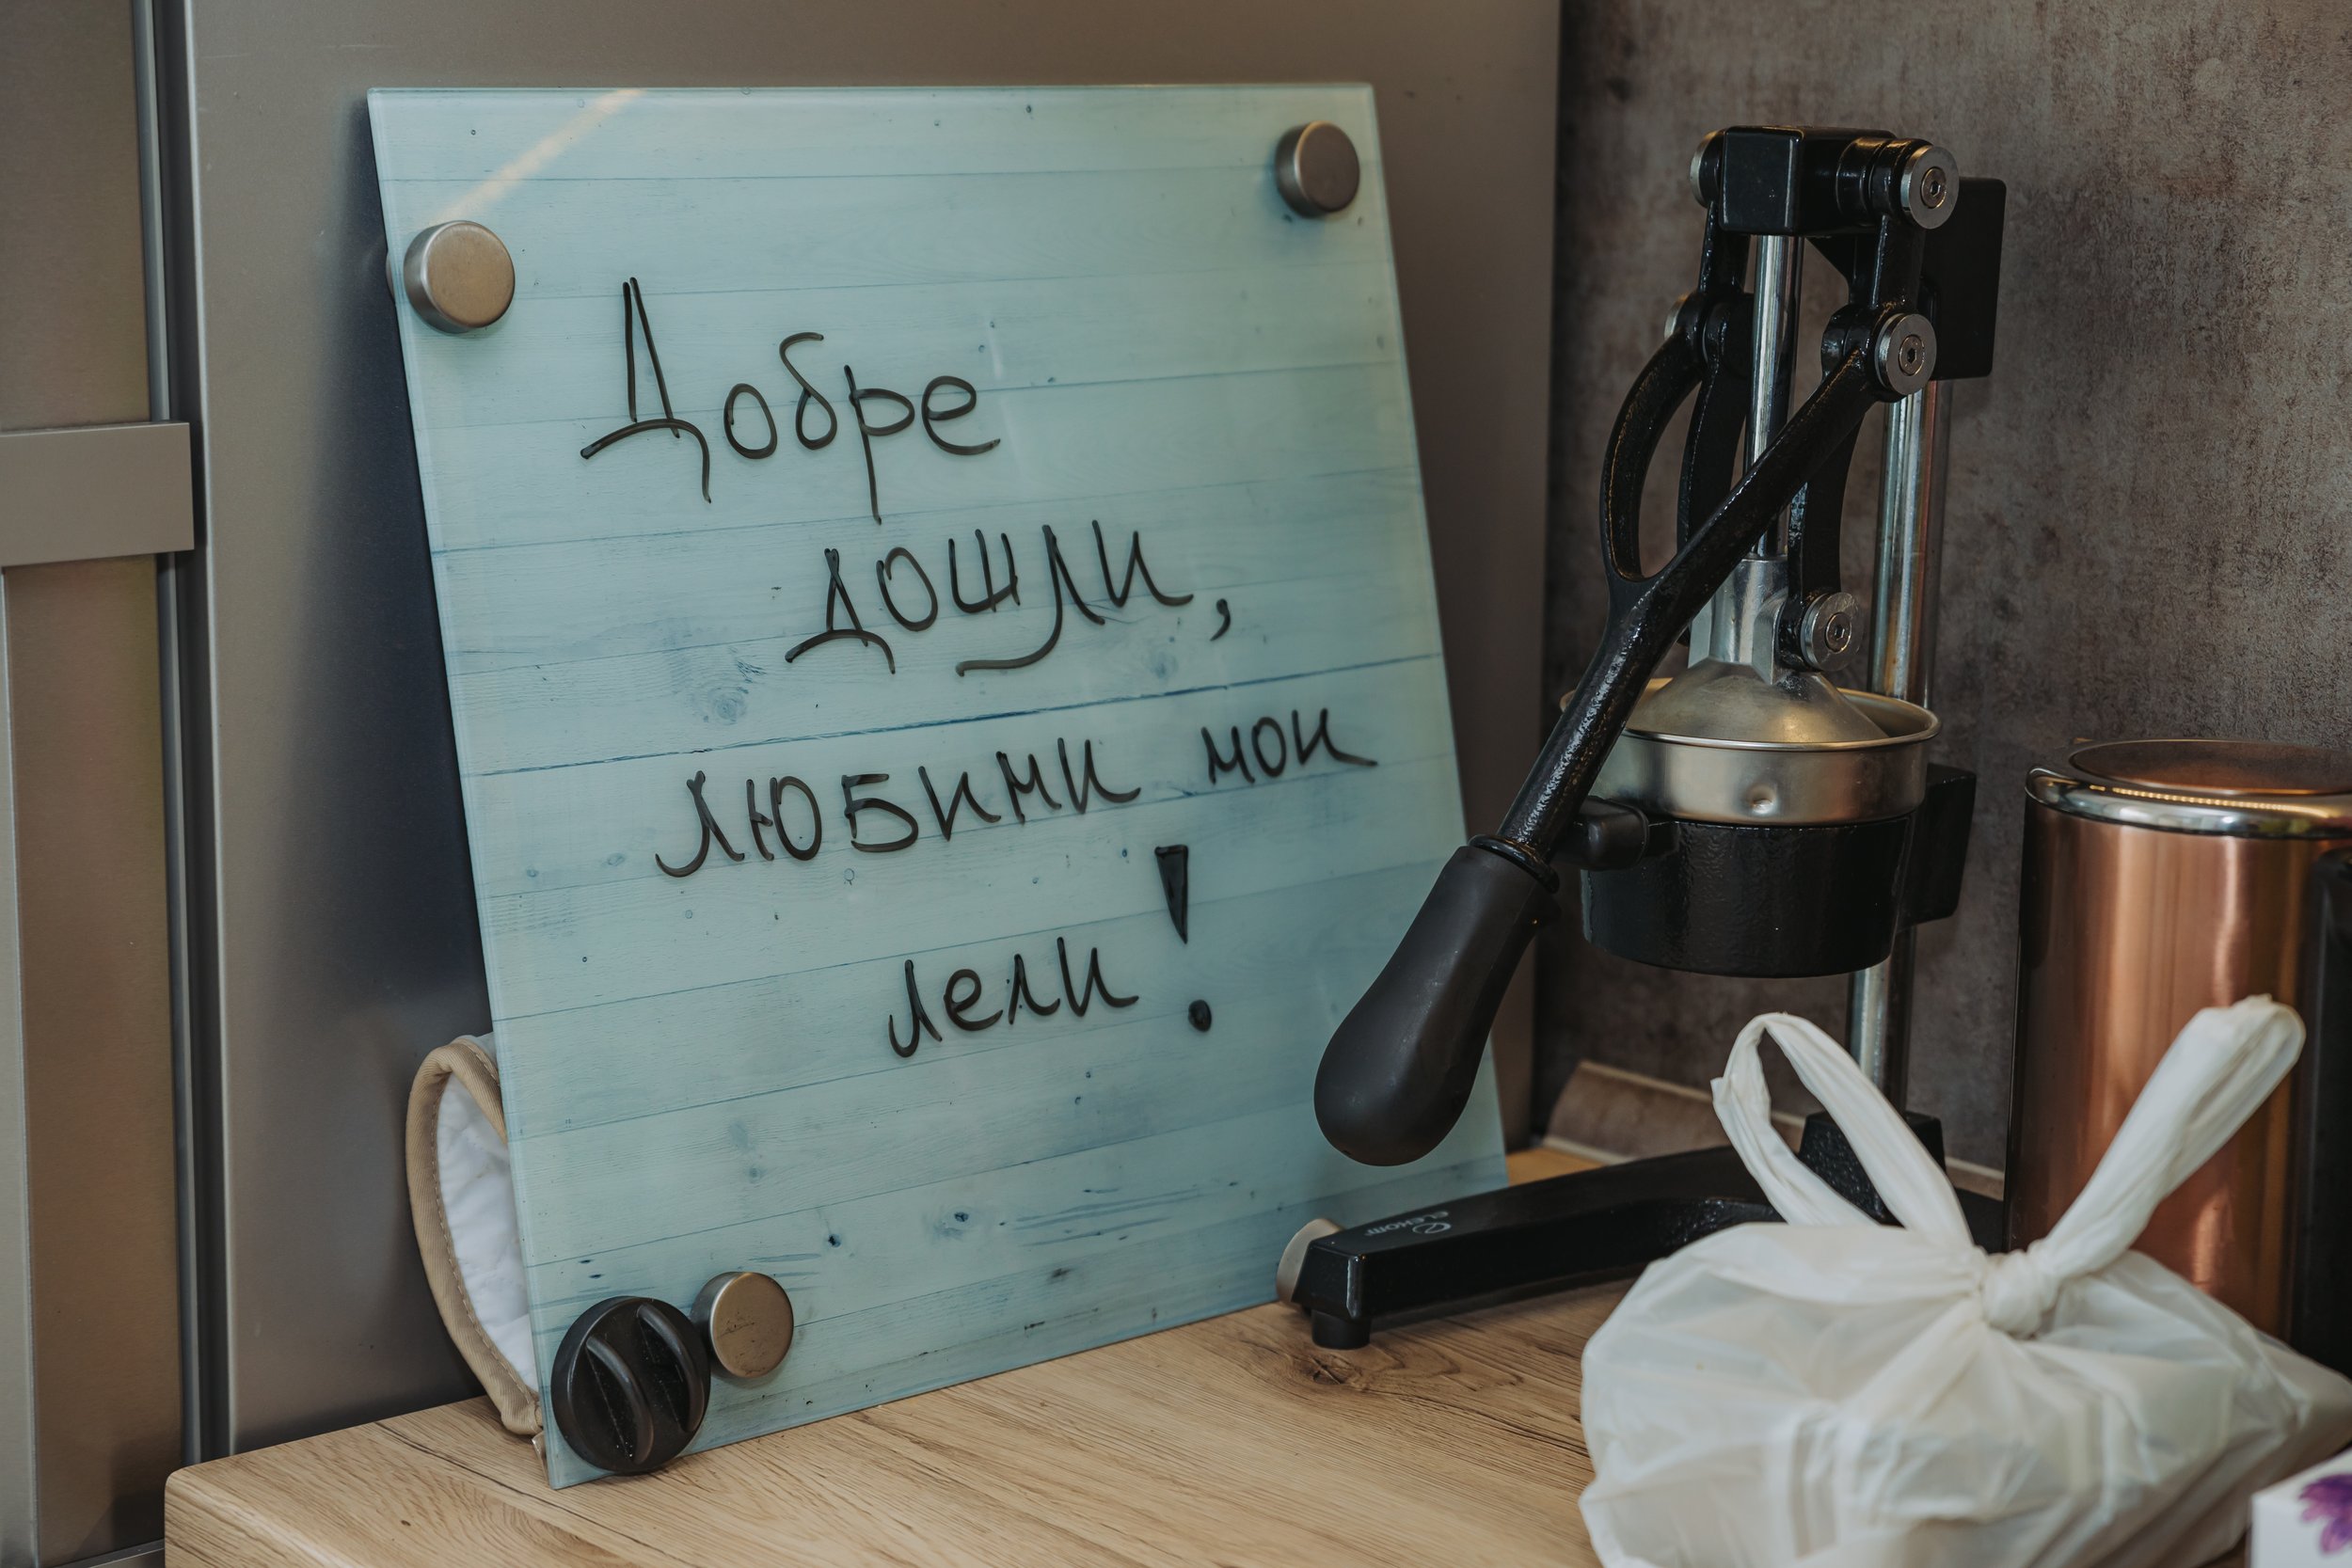 Добре
дошли,
любими мои
лели!